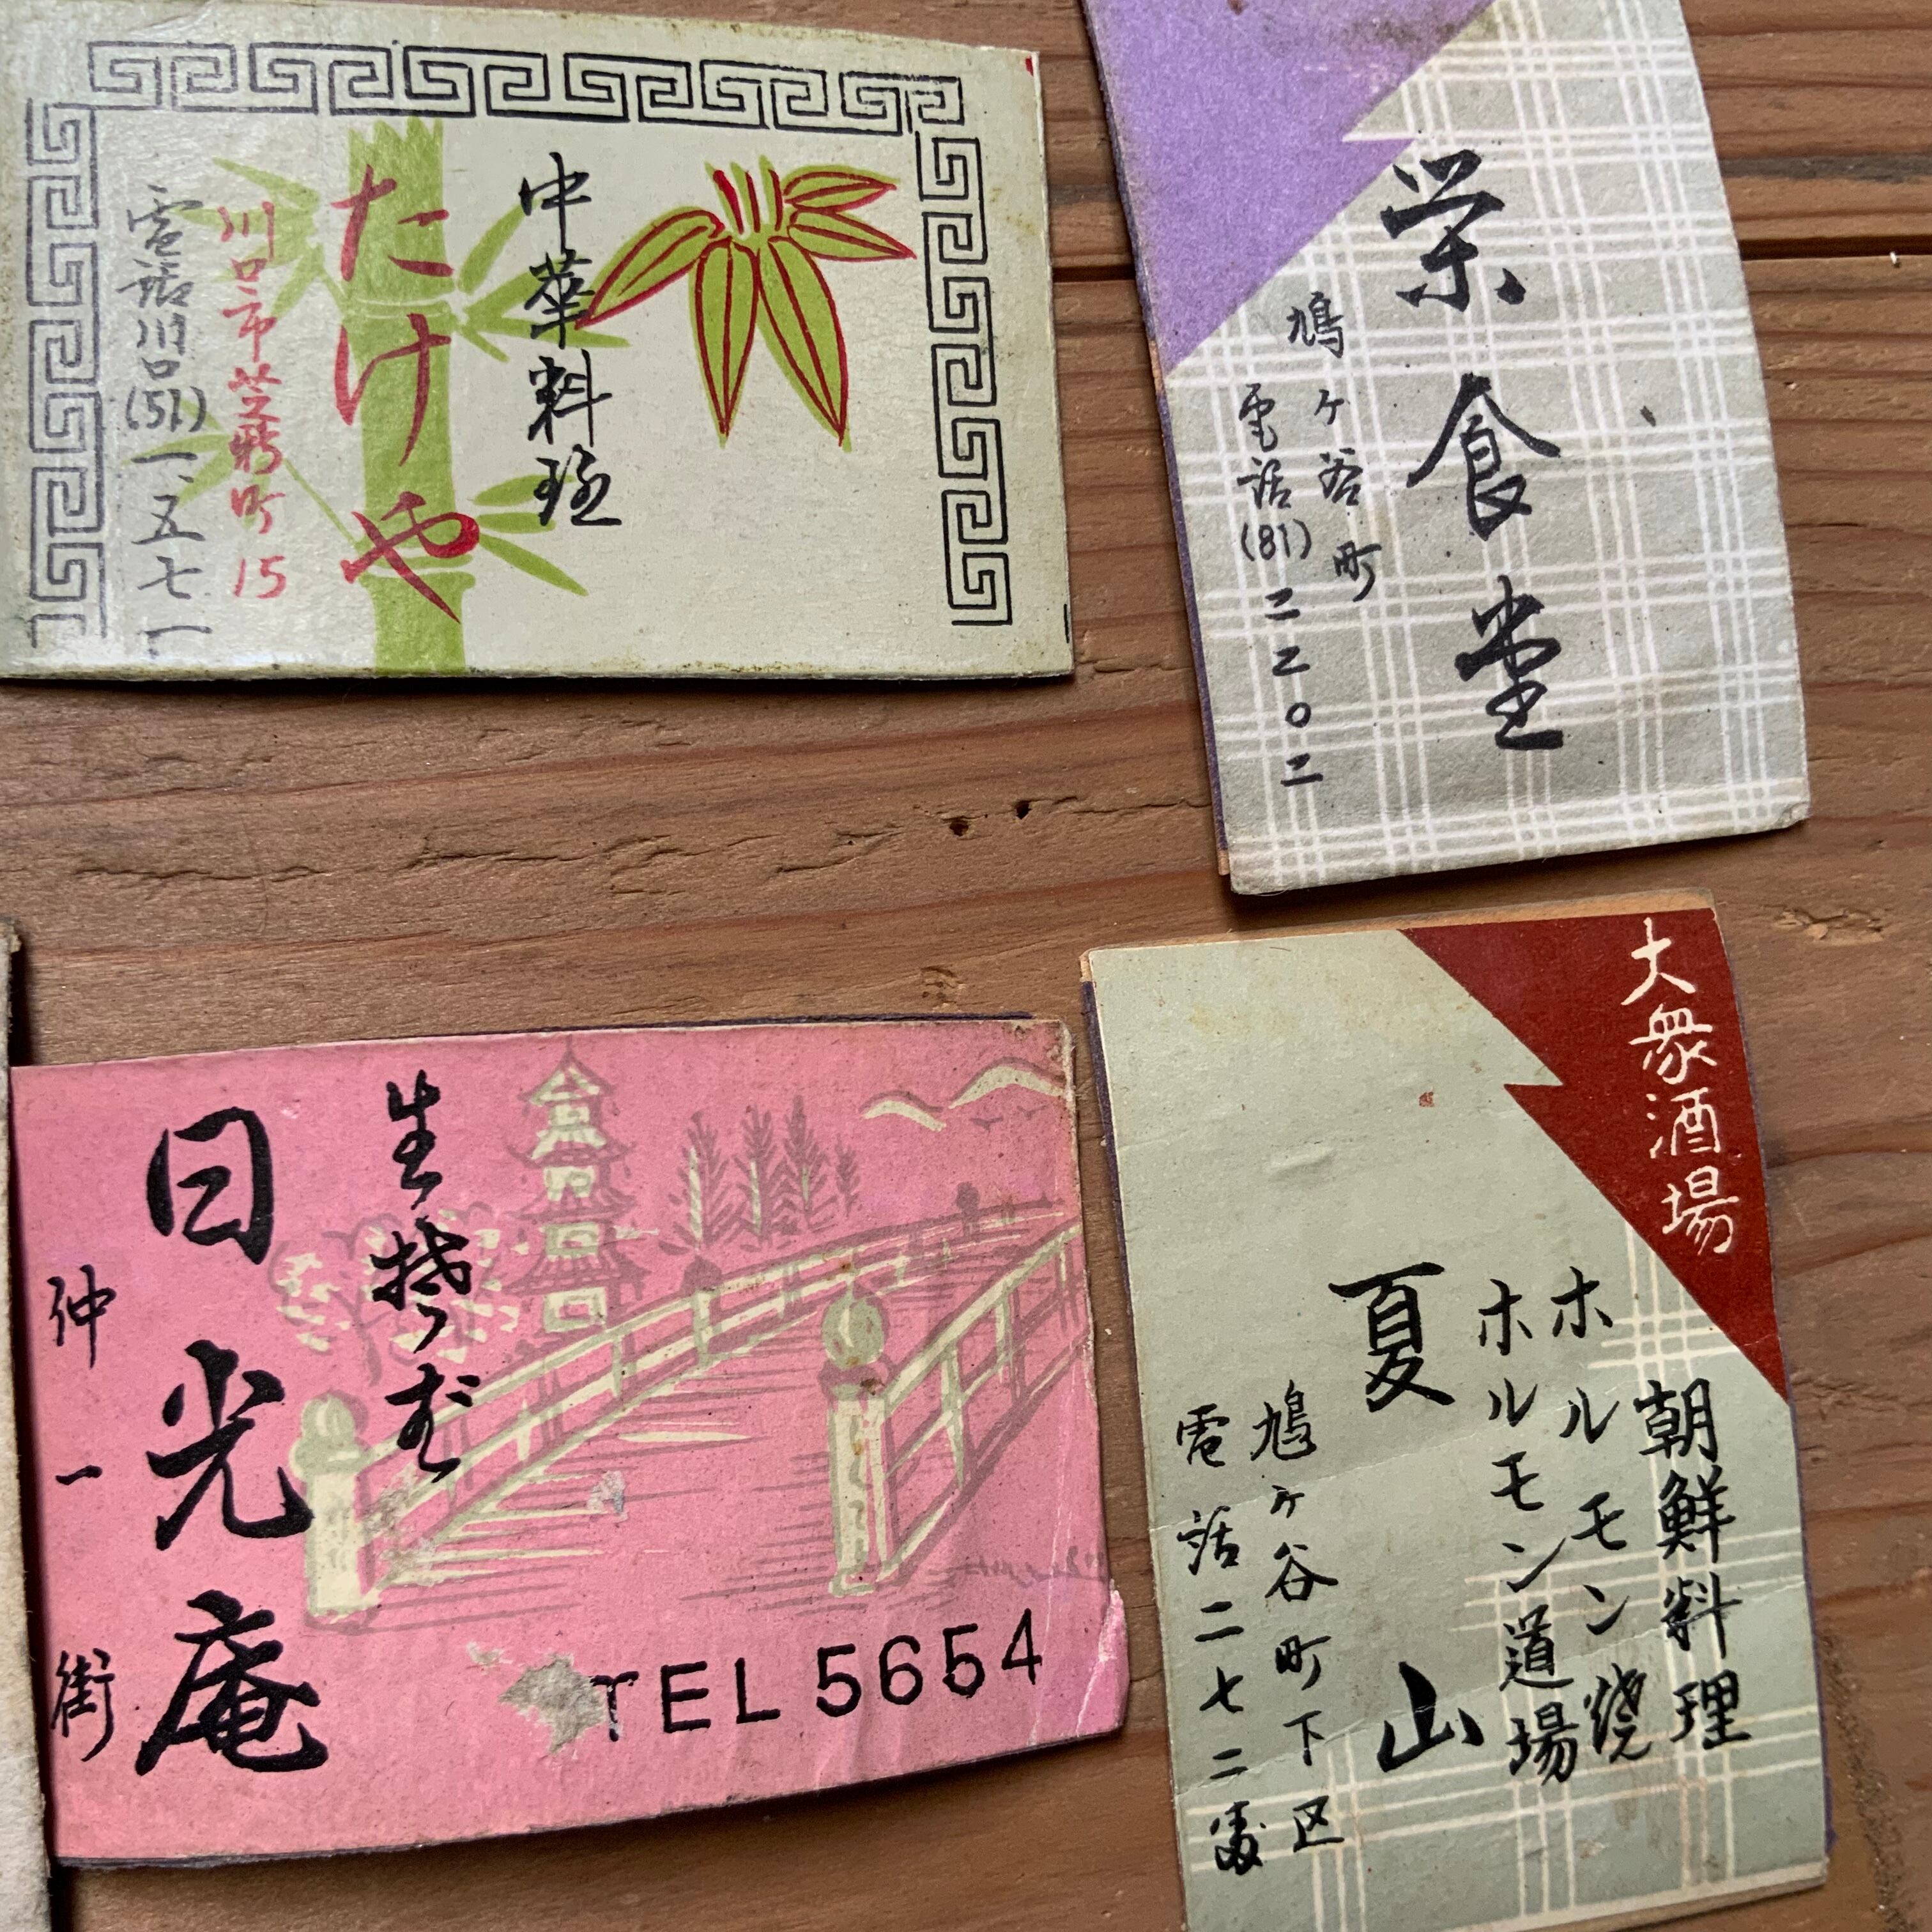 中華料理
たけや
川口市芝新町15
電話川口(51)一、五七一
栄食堂
鳩ヶ谷町
電話(81)二二〇二
生そば
日光庵
仲一街
TEL 5654
大衆酒場
朝鮮料理
ホルモン焼
ホルモン道場
夏山
鳩ヶ谷町下区
電話二七二